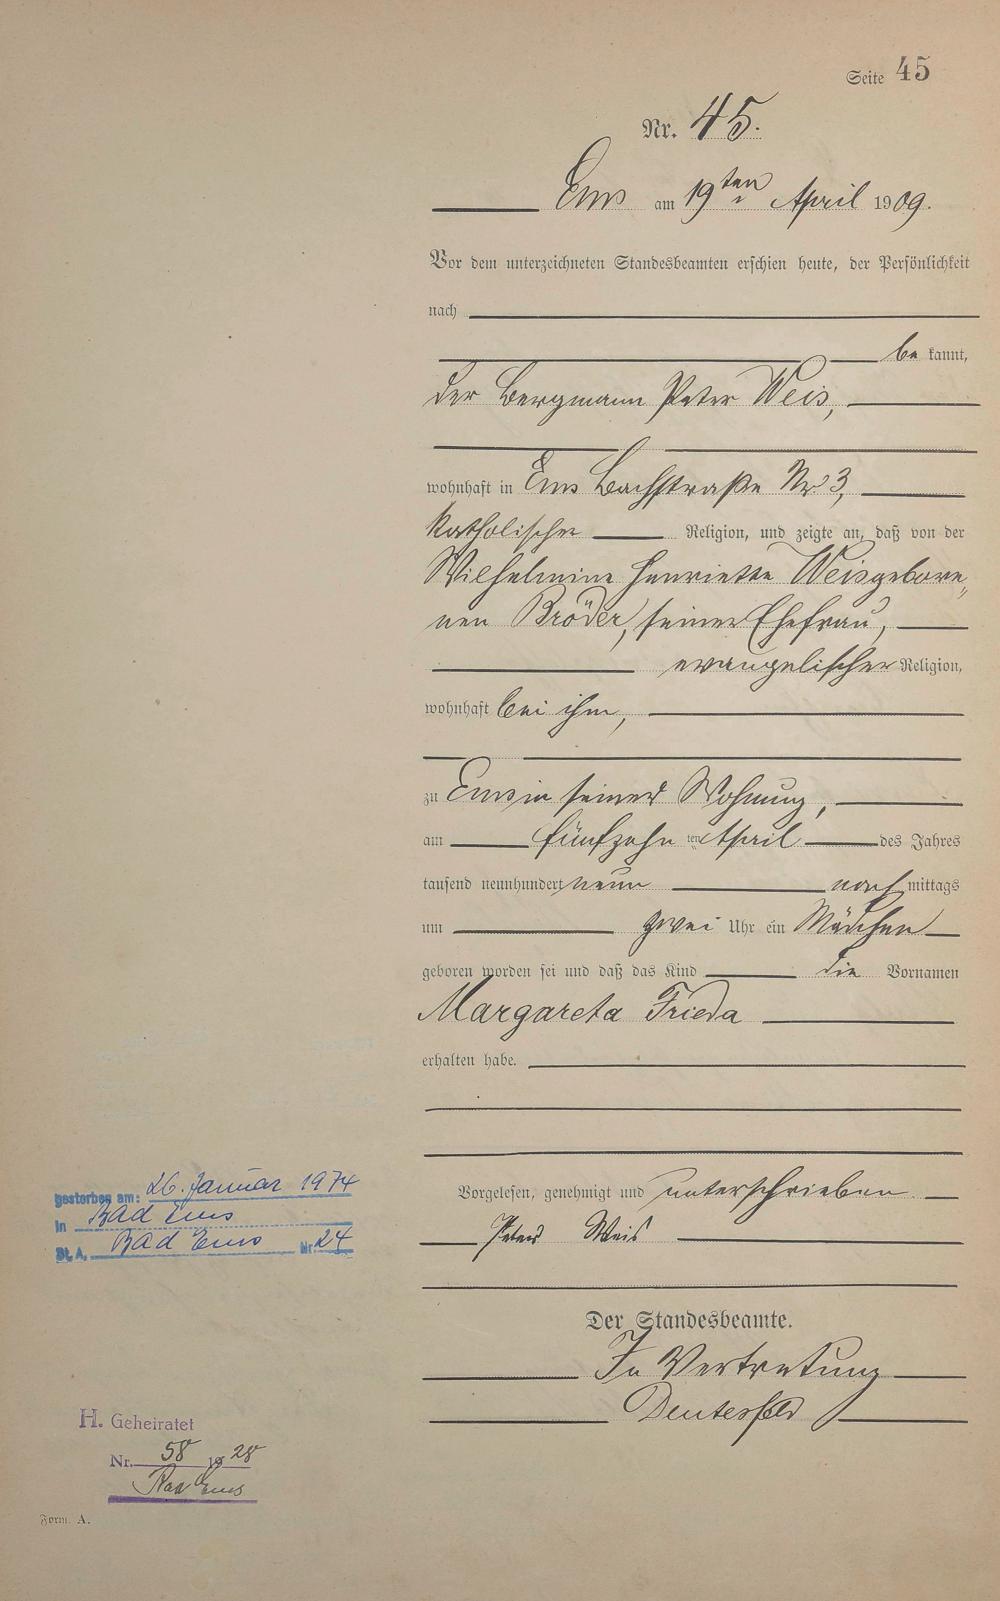 Seite 45
Nr. 45.
Ems am 19ten April 1909.
Vor dem unterzeichneten Standesbeamten erschien heute, der Persönlichkeit
nach
be kannt,
der Bergmann Peter Weis,
wohnhaft in Ems Bachstraße Nr 3,
katholischer Religion, und zeigte an, daß von der
Wilhelmine Henriette Weis gebore„
nen Bröder, seiner Ehefrau,
evangelischer Religion,
wohnhaft bei ihm,
zu Ems in seiner Wohnung,
am fünfzehn ten April des Jahres
tausend neunhundert neun nach mittags
um zwei Uhr ein Mädchen
geboren worden sei und daß das Kind die Vornamen
Margareta Frieda
erhalten habe.
Vorgelesen, genehmigt und unterschrieben
Peter Weis
Der Standesbeamte.
In Vertretung
gestorben am: 26. Januar 1974
in Bad Ems
St. A. Bad Ems Nr. 24
H. Geheiratet
Nr. 58 1928
Bad Ems
Form. A.